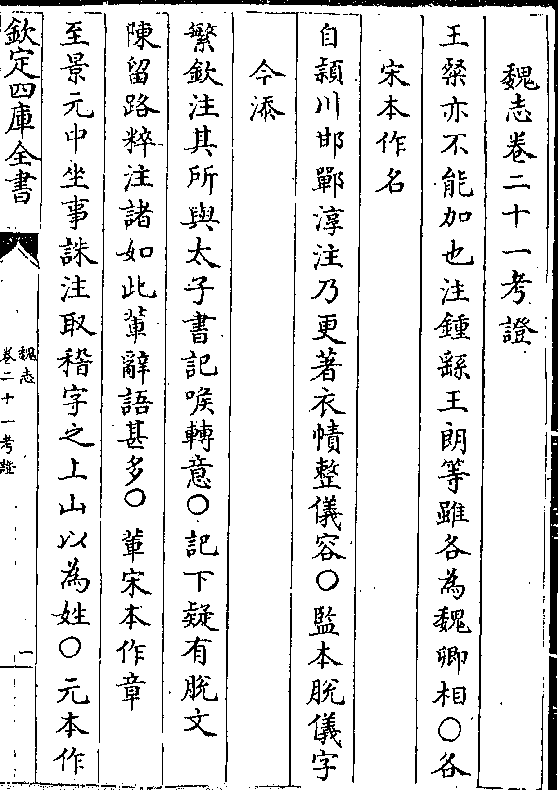 魏志卷二十一考證
王粲亦不能加也注鍾繇王朗等雖各為魏卿相○各
宋本作名
自潁川邯鄲淳注乃更著衣幘整儀容○監本脫儀字
今添
繁欽注其所與太子書記喉轉意○記下疑有脫文
陳留路粹注諸如此軰辭語甚多○軰宋本作章
至景元中坐事誅注取稽字之上山以為姓○元本作
欽定四庫全書
魏志
卷二十一考證
一